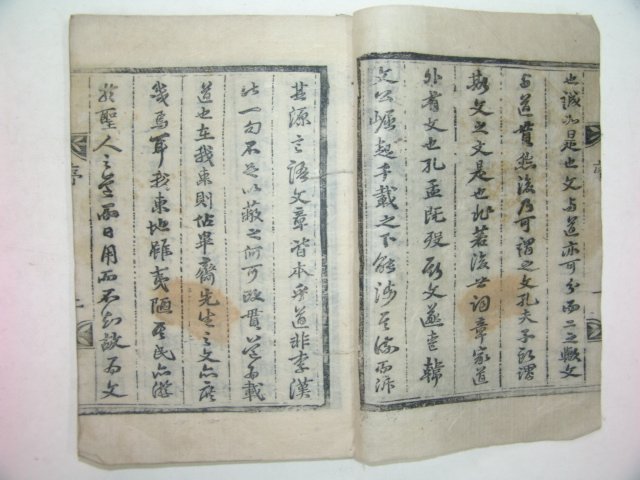 也誠如是也文与道亦可分而二之歟文
与道貫然後乃可謂之文孔夫子所謂
斯文之文是也非若後世詞章家道
外有文也孔孟旣歿斯文遂喪韓
文公崛起千載之下能涉其流而泝
其源言語文章皆本乎道非李漢
此一句不足以蔽之何可改貫道而載
道也在我東則佔畢齋先生之文亦庶
幾焉耳我東地雖夷陋民亦游
於聖人之道而日用而不知故爲文
序